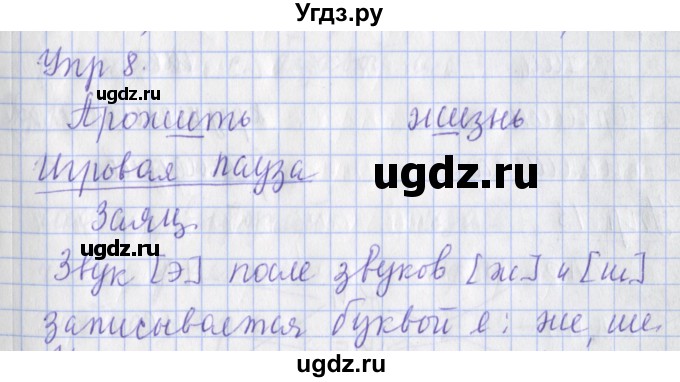 Угдз.ру
Упр 8.
ugdz.ru
Прожить жизнь
Игровая пауза
ugdz.ru
Заяц.
ugdz.ru
Звук [э] после звуков [ж] и [ш]
записывается буквой е: же, ше.
ugdz.ru